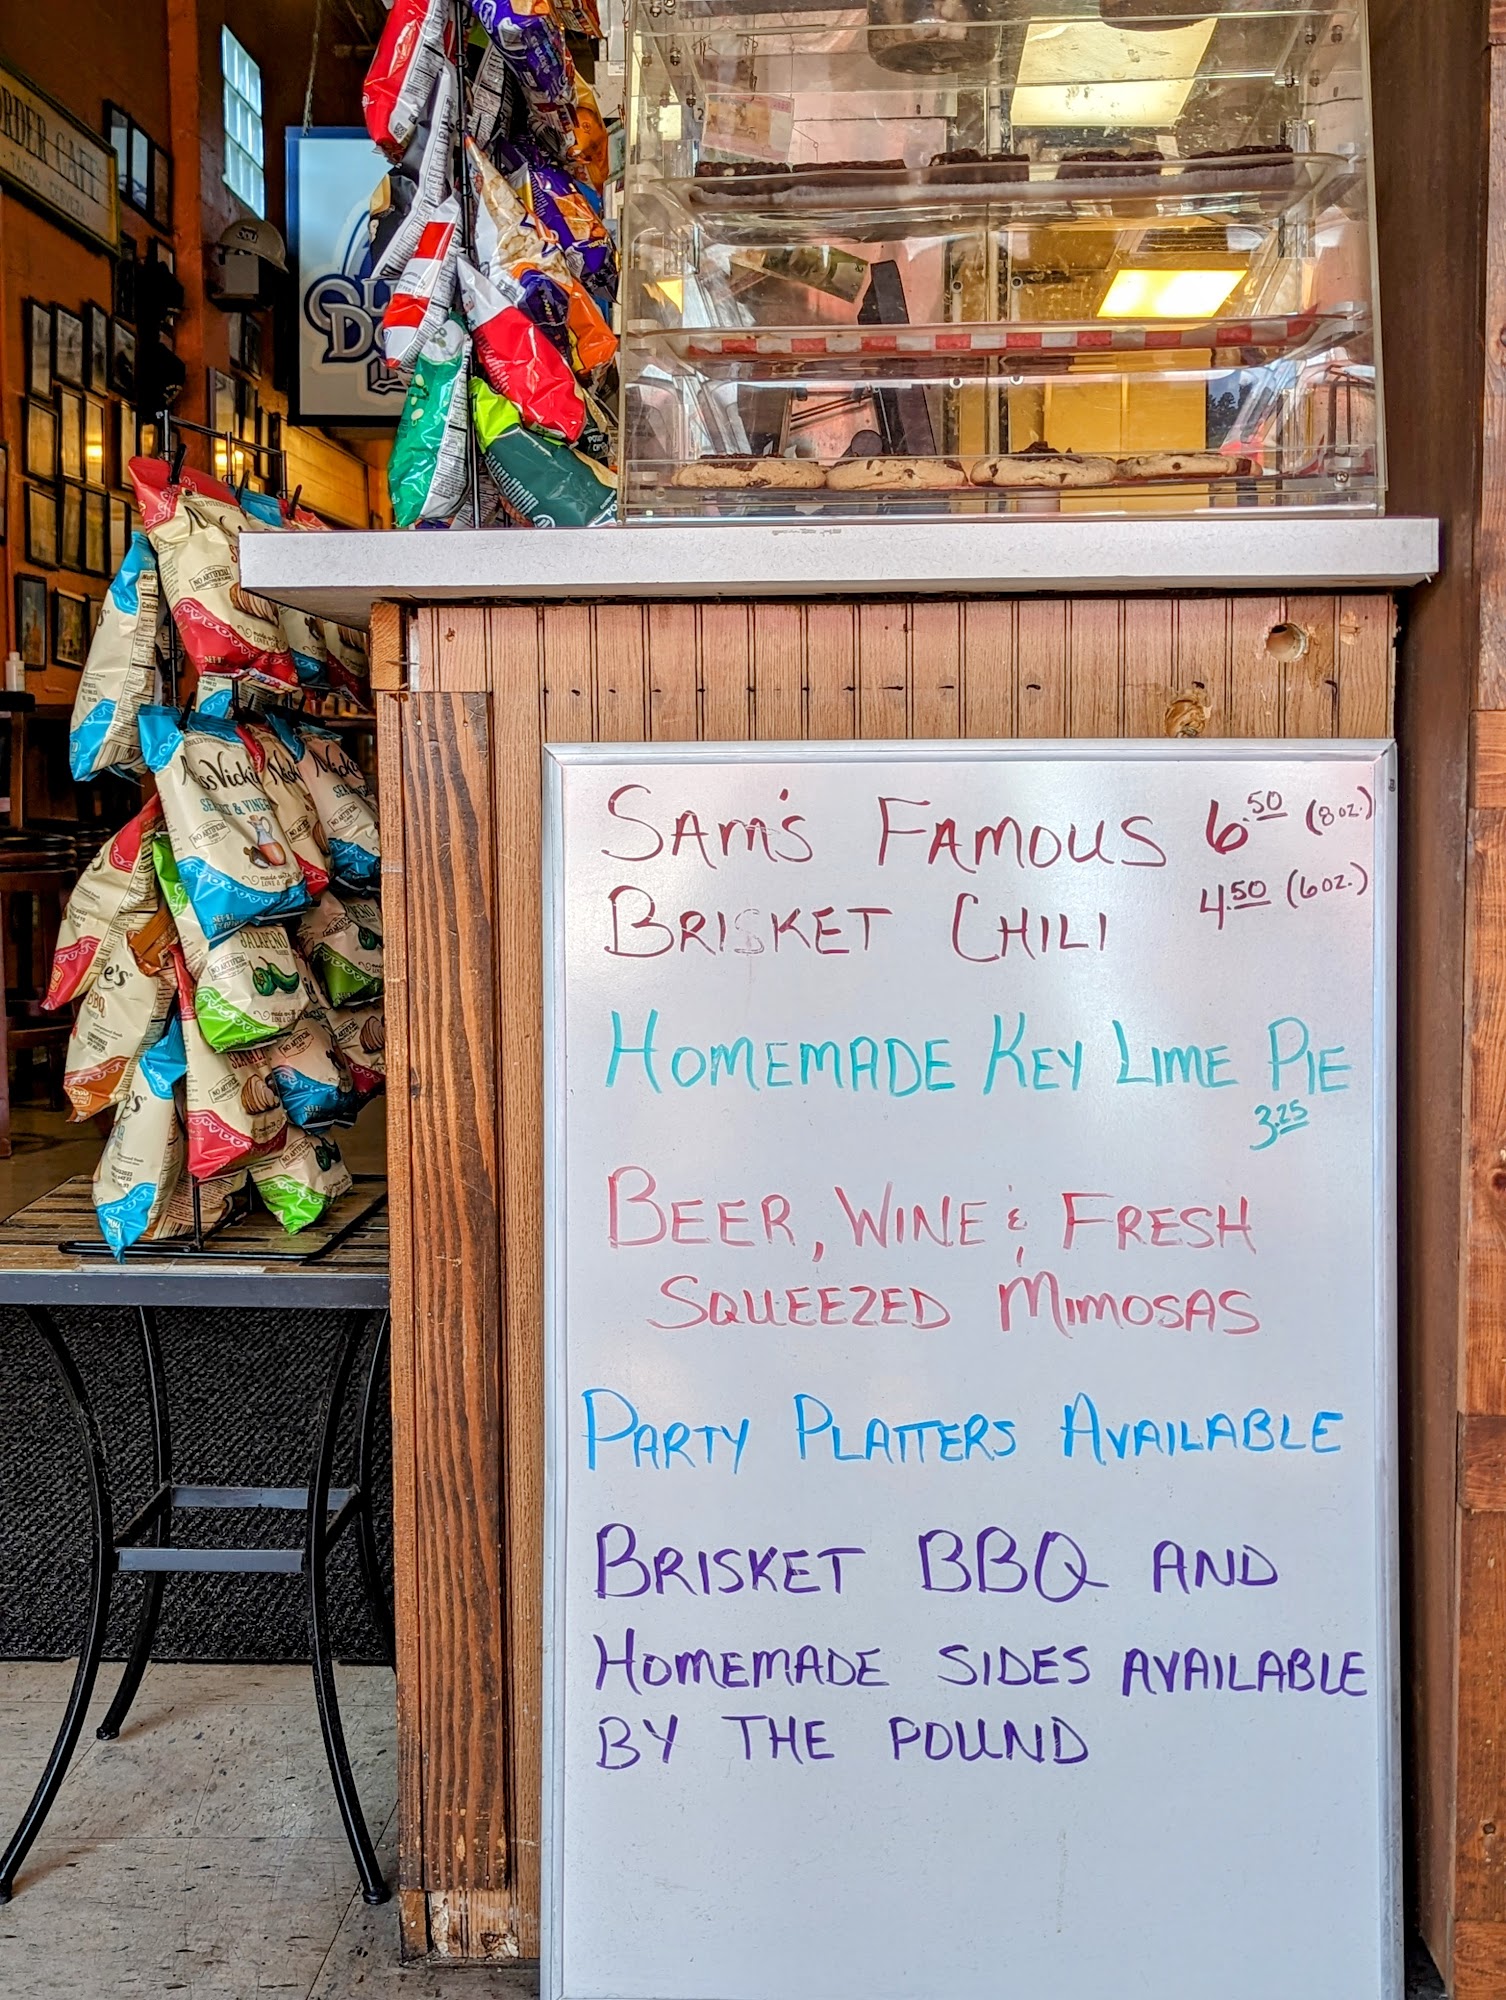 ORDER CAFE
TACOS CERVEZA
Miss Vickie's
SEA SALT & VINEGAR
NO ARTIFICIAL
made with
LOVE &
JALAPEÑO
BBQ
SAM'S FAMOUS 6.50 (8oz.)
BRISKET CHILI 4.50 (6oz.)
HOMEMADE KEY LIME PIE
3.25
BEER, WINE & FRESH
SQUEEZED MIMOSAS
PARTY PLATTERS AVAILABLE
BRISKET BBQ AND
HOMEMADE SIDES AVAILABLE
BY THE POUND